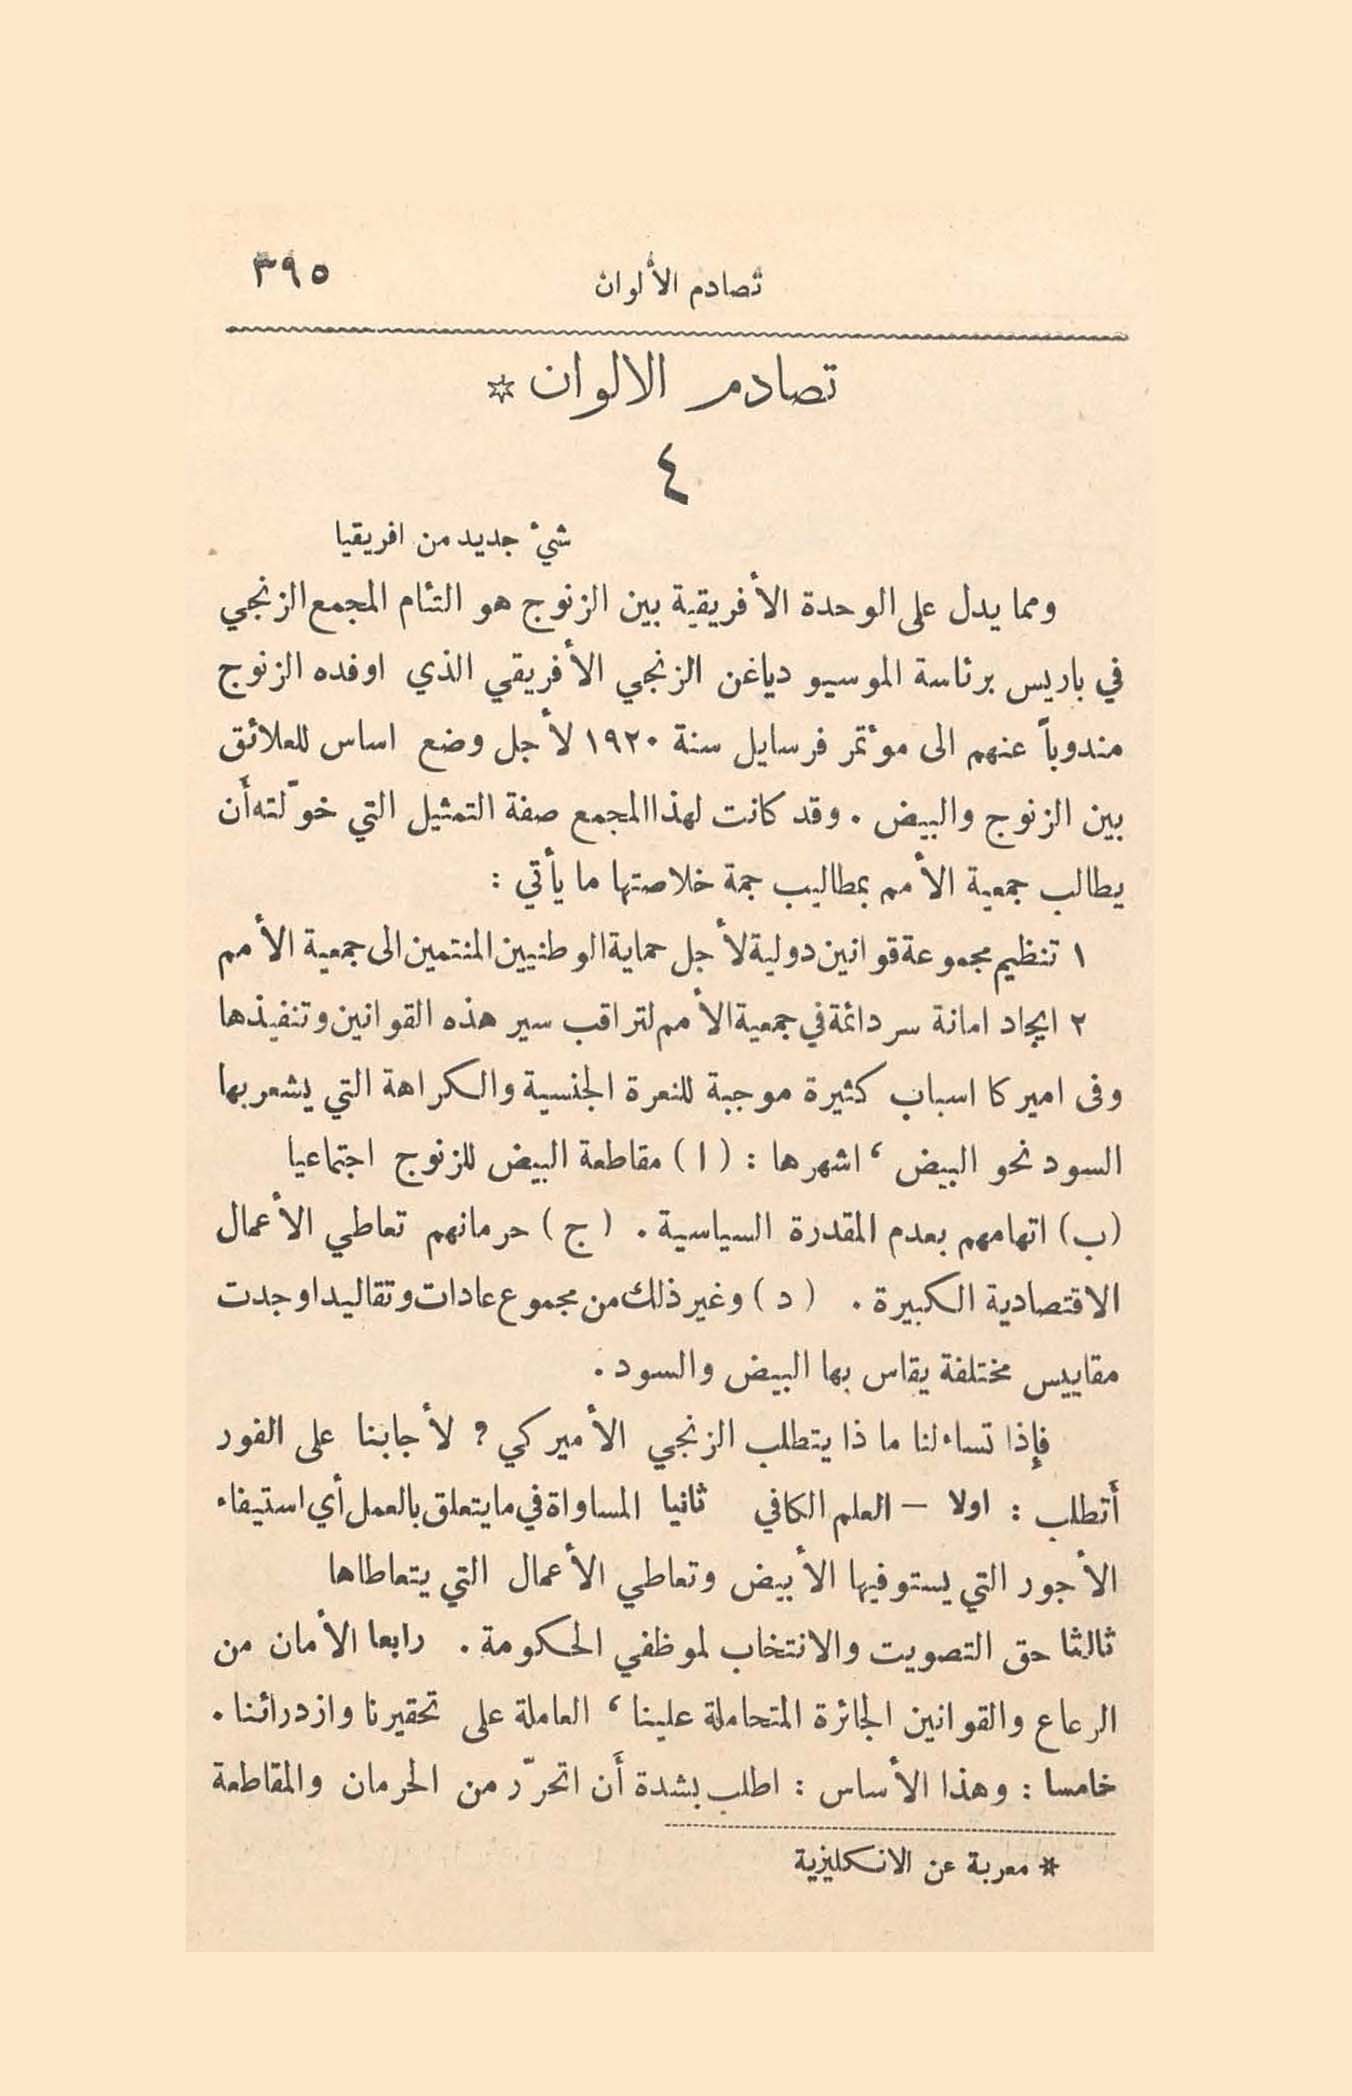 تصادم الألوان ٣٩٥
تصادم الالوان *
٤
شيء جديد من افريقيا
ومما يدل على الوحدة الأفريقية بين الزنوج هو التئام المجمع الزنجي
في باريس برئاسة الموسيو دياغن الزنجي الأفريقي الذي اوفده الزنوج
مندوباً عنهم الى مؤتمر فرسايل سنة ١٩٢٠ لأجل وضع اساس للعلائق
بين الزنوج والبيض . وقد كانت لهذا المجمع صفة التمثيل التي خوّلته أَن
يطالب جمعية الأمم بمطاليب جمة خلاصتها ما يأتي :
١ تنظيم مجموعة قوانين دولية لأجل حماية الوطنيين المنتمين الى جمعية الأمم
٢ ايجاد امانة سر دائمة في جمعية الأمم لتراقب سير هذه القوانين وتنفيذها
وفى اميركا اسباب كثيرة موجبة للنعرة الجنسية والكراهة التي يشعر بها
السود نحو البيض ، اشهرها : ( ا ) مقاطعة البيض للزنوج اجتماعيا
(ب) اتهامهم بعدم المقدرة السياسية . ( ج ) حرمانهم تعاطي الأعمال
الاقتصادية الكبيرة . ( د ) وغير ذلك من مجموع عادات وتقاليد اوجدت
مقاييس مختلفة يقاس بها البيض والسود .
فإِذا تساءلنا ما ذا يتطلب الزنجي الأميركي ? لأجابنا على الفور
أَتطلب : اولا – العلم الكافي ثانيا المساواة في ما يتعلق بالعمل أي استيفاء
الأجور التي يستوفيها الأبيض وتعاطي الأعمال التي يتعاطاها
ثالثا حق التصويت والانتخاب لموظفي الحكومة . رابعا الأمان من
الرعاع والقوانين الجائرة المتحاملة علينا ، العاملة على تحقيرنا وازدرائنا .
خامسا : وهذا الأساس : اطلب بشدة أَن اتحرّر من الحرمان والمقاطعة
* معربة عن الانكليزية